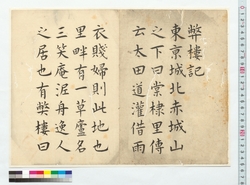 弊棲記
東京城北赤城山
之下曰棠棣里傳
云太田道灌借雨
衣賤婦則此地也
里畔有一草廬名
三笑庵泥舟逸人
之居也有弊棲曰